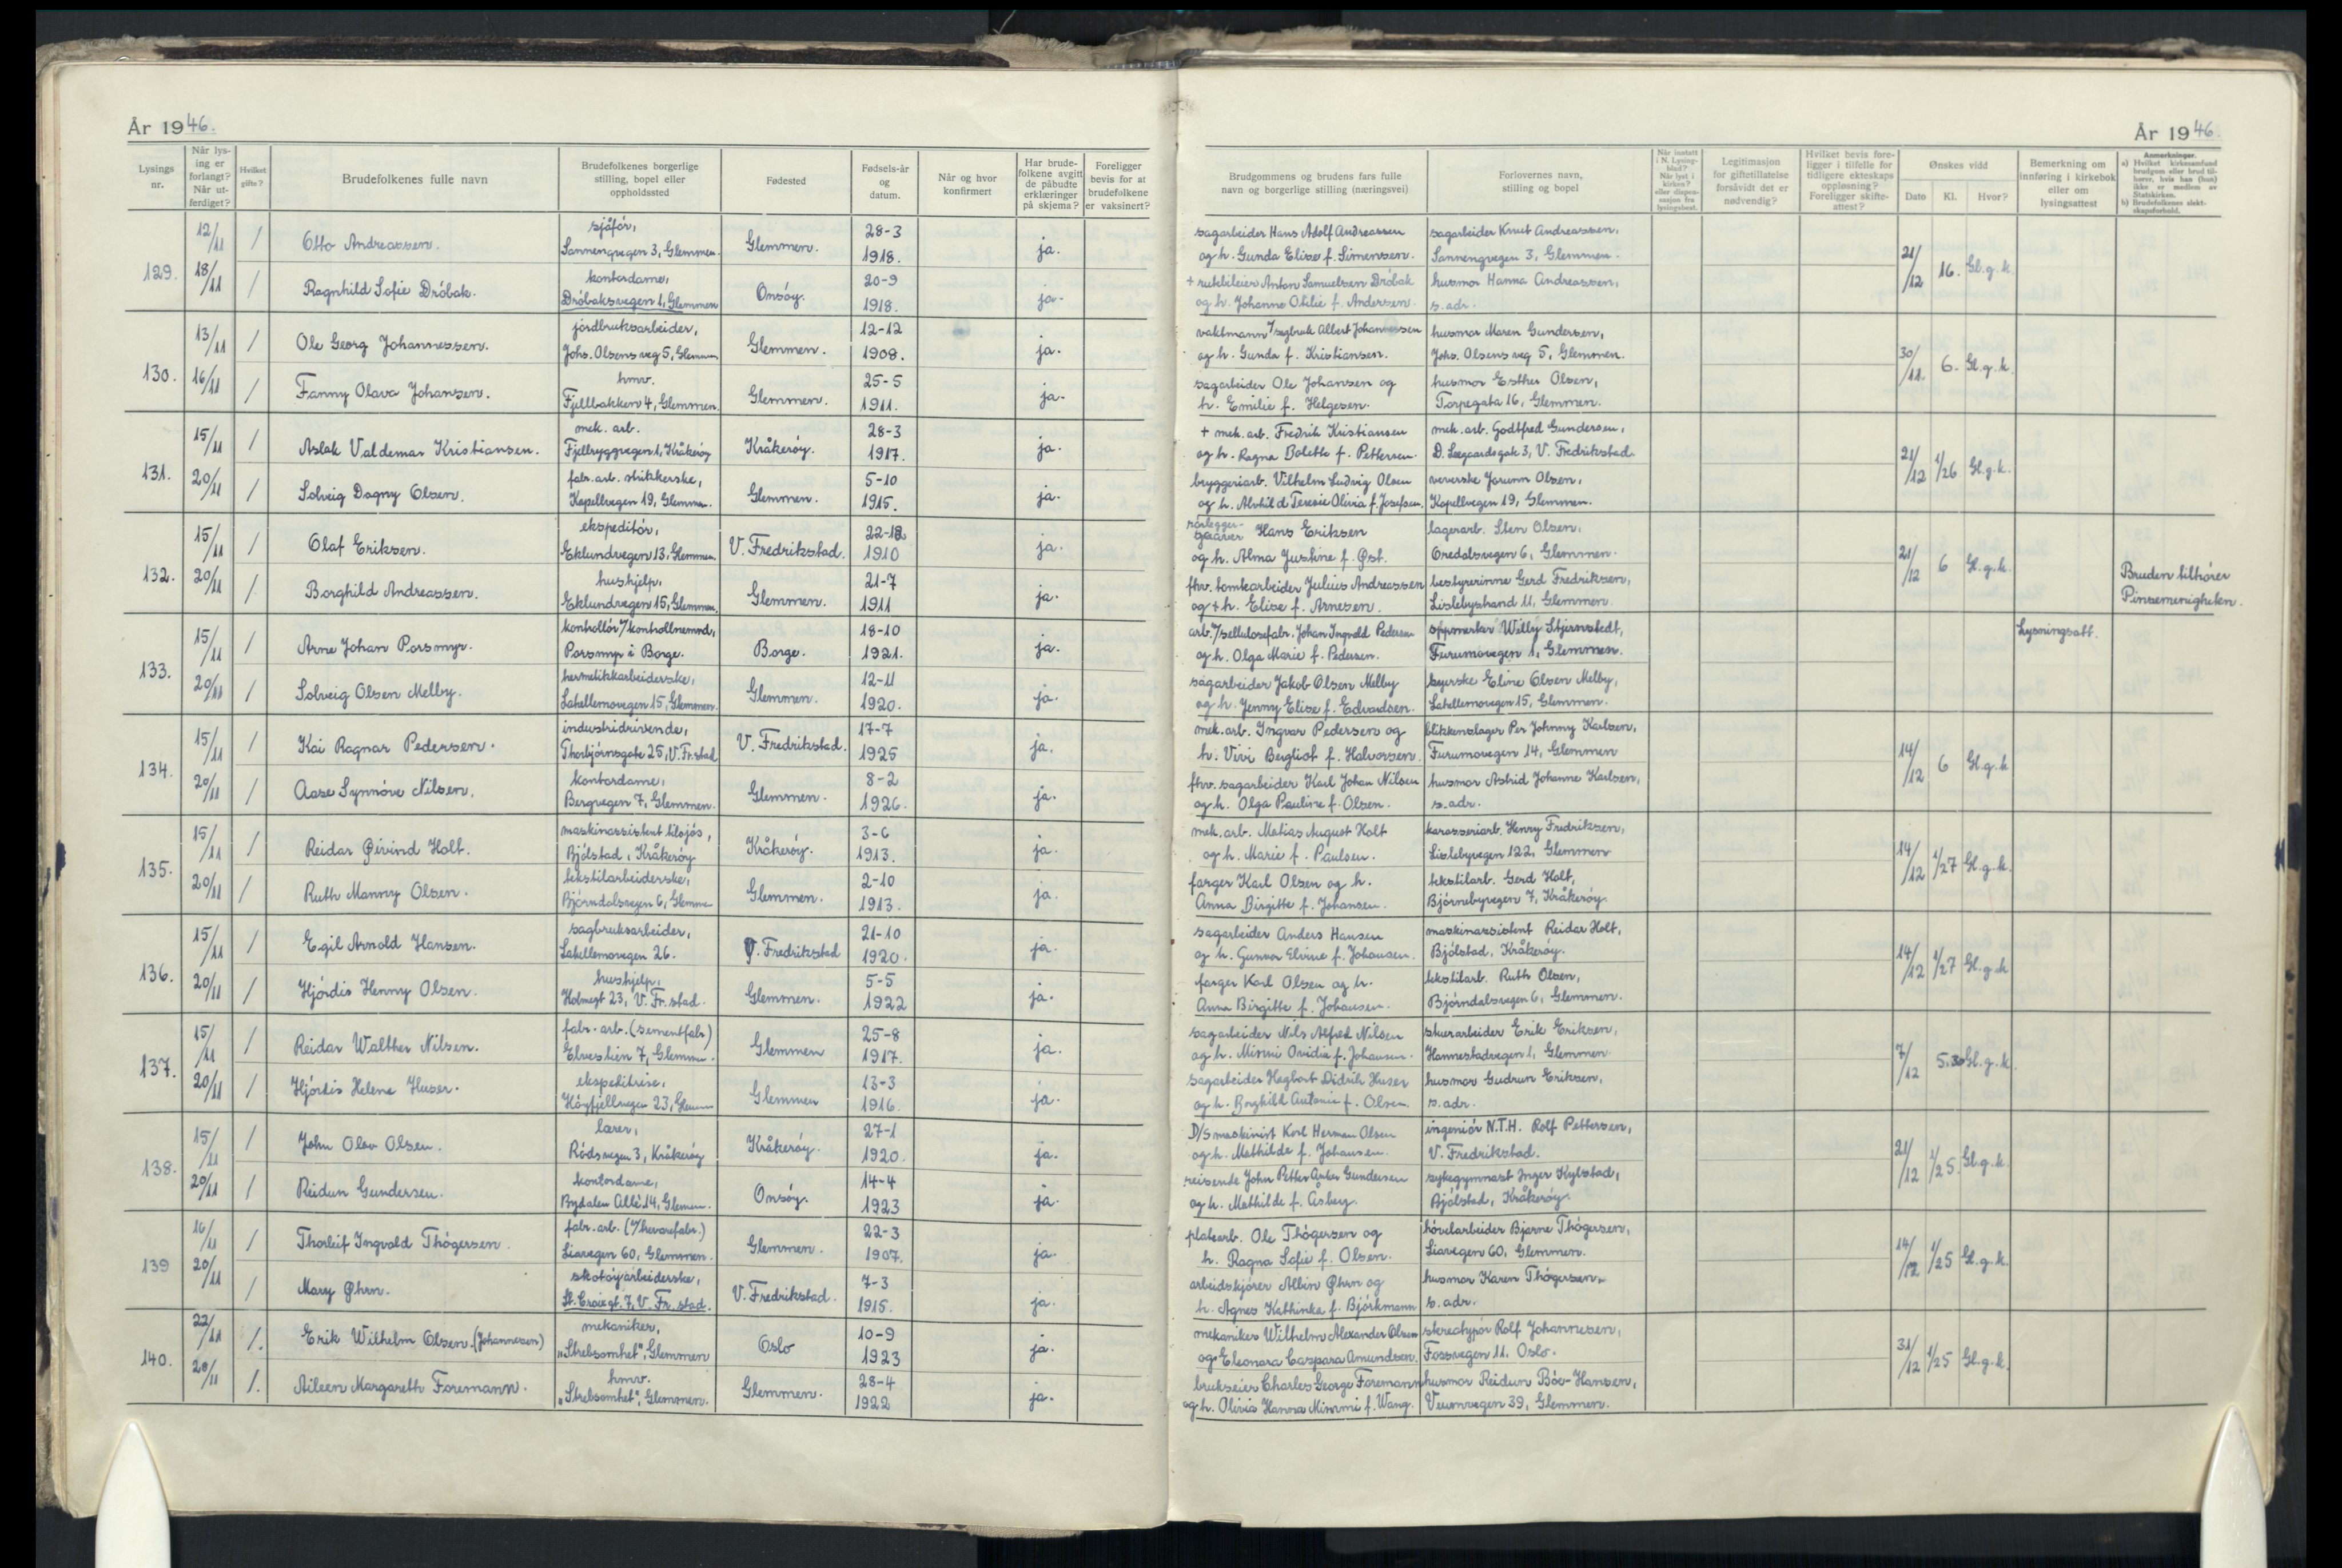 År 1946.
År 1946.
Lysings nr.
Når lysing er forlangt? Når utferdiget?
Hvilket gifte?
Brudefolkenes fulle navn
Brudefolkenes borgerlige stilling, bopel eller oppholdssted
Fødested
Fødsels-år og datum.
Når og hvor konfirmert
Har brudefolkene avgitt de påbudte erklæringer på skjema?
Foreligger bevis for at brudefolkene er vaksinert?
Brudgommens og brudens fars fulle navn og borgerlige stilling (næringsvei)
Forlovernes navn, stilling og bopel
Legitimasjon for giftetillatelse forsåvidt det er nødvendig?
Hvilket bevis foreligger i tilfelle for tidligere ekteskaps oppløsning? Foreligger skifteattest?
Ønskes vidd
Dato Kl. Hvor?
Bemerkning om innføring i kirkebok eller om lysingsattest
Anmerkninger.
a) Hvilket kirkesamfund brudgom eller brud tilhører, hvis han (hun) ikke er medlem av Statskirken.
b) Brudefolkenes slektskapsforhold.
129. 12/11 / Otto Andreassen. sjåför, Sannengvegen 3, Glemmen. Glemmen. 28-3 1918. ja. sagarbeider Hans Adolf Andreassen og h. Gunda Elise f. Simensen. sagarbeider Knut Andreassen, Sannengvegen 3, Glemmen. 21/12 16. Gl.g.k.
18/11 / Ragnhild Sofie Dröbak. kontordame, Dröbaksvegen 1, Glemmen Onsöy. 20-9 1918. ja. + Anton Samuelsen Dröbak og h. Johanne Otilie f. Andersen. husmor Hanna Andreassen, s.adr.
130. 13/11 / Ole Georg Johannessen. jordbruksarbeider, Johs. Olsens veg 5, Glemmen Glemmen. 12-12 1908. ja. vaktmann v/sagbruk Albert Johannessen og h. Gunda f. Kristiansen. husmor Maren Gundersen, Johs. Olsens veg 5, Glemmen. 30/11. 6. Gl.g.k.
16/11 / Fanny Olava Johansen. hmv. Fjellbakken 4, Glemmen. Glemmen. 25-5 1911. ja. sagarbeider Ole Johansen og h. Emilie f. Helgesen. husmor Esther Olsen, Torpegata 16, Glemmen.
131. 15/11 / Aslak Valdemar Kristiansen. mek. arb. Fjellryggvegen 1, Kråkeröy Kråkeröy. 28-3 1917. ja. + mek. arb. Fredrik Kristiansen og h. Ragna Bolette f. Pettersen. mek. arb. Godtfred Gundersen, D. Leegaardsgate 3, V. Fredrikstad. 21/12 1/26 Gl.g.k.
20/11 / Solveig Dagny Olsen. fabr. arb. strikkerske, Kapellvegen 19, Glemmen. Glemmen. 5-10 1915. ja. bryggeriarb. Vilhelm Ludvig Olsen og h. Alvhild Teresie Olivia f. Josefsen. veverske Jorunn Olsen, Kapellvegen 19, Glemmen.
132. 15/11 / Olaf Eriksen. ekspeditör, Eklundvegen 13, Glemmen. V. Fredrikstad. 22-12 1910 ja. Hans Eriksen og h. Alma Justine f. Øst. lagerarb. Sten Olsen, Oredalsvegen 6, Glemmen. 21/12 6 Gl.g.k.
20/11 / Borghild Andreassen. hushjelp, Eklundvegen 15, Glemmen. Glemmen. 21-7 1911 ja. fhv. tomtearbeider Julius Andreassen og + h. Elise f. Arnesen. bestyrerinne Gerd Fredriksen, Lislebystrand 11, Glemmen. Bruden tilhörer Pinsemenigheten.
133. 15/11 / Arne Johan Porsmyr. kontrollör v/kontrollnemnd, Porsmyr i Borge. Borge. 18-10 1921. ja. arb. v/sellulosefabr. Johan Ingvald Pedersen og h. Olga Marie f. Pedersen. oppmerker Willy Stjernstedt, Furumovegen 1, Glemmen. Lysningsatt.
20/11 / Solveig Olsen Melby. hermetikkarbeiderske, Lahellemovegen 15, Glemmen. Glemmen. 12-11 1920. ja. sagarbeider Jakob Olsen Melby og h. Jenny Elise f. Edvardsen. syerske Eline Olsen Melby, Lahellemovegen 15, Glemmen.
134. 15/11 / Kai Ragnar Pedersen. industridrivende, Thorbjörnsgate 25, V. Fr.stad V. Fredrikstad. 17-7 1925 ja. mek. arb. Ingvar Pedersen og h. Vivi Bergliot f. Halvorsen. blikkenslager Per Johnny Karlsen, Furumovegen 14, Glemmen 14/12 6 Gl.g.k
20/11 / Aase Synnöve Nilsen. kontordame, Bergvegen 7, Glemmen. Glemmen. 8-2 1926. ja. fhv. sagarbeider Karl Johan Nilsen og h. Olga Pauline f. Olsen. husmor Astrid Johanne Karlsen, s.adr.
135. 15/11 / Reidar Øivind Holt. maskinassistent tilsjös, Bjölstad, Kråkeröy Kråkeröy. 3-6 1913. ja. mek. arb. Matias August Holt og h. Marie f. Paulsen. karosseriarb. Henry Fredriksen, Lislebyvegen 122, Glemmen 14/12 1/27 Gl.g.k.
20/11 / Ruth Manny Olsen. tekstilarbeiderske, Björndalsvegen 6, Glemmen Glemmen. 2-10 1913. ja. farger Karl Olsen og h. Anna Birgitte f. Johansen. tekstilarb. Gerd Holt, Björnebyvegen 7, Kråkeröy.
136. 15/11 / Egil Arnold Hansen. sagbruksarbeider, Lahellemovegen 26. V. Fredrikstad 21-10 1920. ja. sagarbeider Anders Hansen og h. Gunvor Elvine f. Johansen. maskinassistent Reidar Holt, Bjölstad, Kråkeröy. 14/12 1/27 Gl.g.k
20/11 / Hjördis Henny Olsen. hushjelp, Holmegt 23, V. Fr.stad. Glemmen. 5-5 1922 ja. farger Karl Olsen og h. Anna Birgitte f. Johansen. tekstilarb. Ruth Olsen, Björndalsvegen 6, Glemmen.
137. 15/11 / Reidar Walther Nilsen. fabr. arb. (sementfabr) Elvestien 7, Glemmen. Glemmen 25-8 1917. ja. sagarbeider Nils Alfred Nilsen og h. Minni Ovidia f. Johansen. stuerarbeider Erik Eriksen, Hannestadvegen 1, Glemmen. 7/12 5.30 Gl.g.k.
20/11 / Hjördis Helene Huser. ekspeditrise, Högfjellvegen 23, Glemmen Glemmen 13-3 1916. ja. sagarbeider Hagbart Didrik Huser og h. Borghild Antonie f. Olsen. husmor Gudrun Eriksen, s.adr.
138. 15/11 / John Olav Olsen. lærer, Rödsvegen 3, Kråkeröy Kråkeröy. 27-1 1920. ja. D/S maskinist Karl Herman Olsen og h. Mathilde f. Johansen. ingeniör N.T.H. Rolf Pettersen, V. Fredrikstad. 21/12 1/25. Gl.g.k.
20/11 / Reidun Gundersen. kontordame, Bydalen Allé 14, Glemmen. Onsöy. 14-4 1923 ja. reisende John Petter Anker Gundersen og h. Mathilde f. Åsberg. sykegymnast Inger Kylstad, Bjölstad, Kråkeröy.
139 16/11 / Thorleif Ingvald Thögersen. fabr. arb. Liavegen 60, Glemmen. Glemmen. 22-3 1907. ja. platearb. Ole Thögersen og h. Ragna Sofie f. Olsen. hövelarbeider Bjarne Thögersen, Liavegen 60, Glemmen. 14/12 1/25 Gl.g.k.
20/11 / Mary Øhrn. skotöyarbeiderske, St. Croixgt. 7, V. Fr.stad. V. Fredrikstad. 7-3 1915. ja. arbeidskjörer Albin Øhrn og h. Agnes Kathinka f. Björkmann husmor Karen Thögersen, s.adr.
140. 22/11 /. Erik Wilhelm Olsen. (Johannesen) mekaniker, „Strebsomhet", Glemmen Oslo 10-9 1923 ja. mekaniker Wilhelm Alexander Olsen og Eleonora Caspara Amundsen. stereotypör Rolf Johannesen, Fossvegen 11, Oslo. 31/12 1/25 Gl.g.k.
20/11 /. Aileen Margareth Foremann. hmv. „Strebsomhet", Glemmen. Glemmen. 28-4 1922 ja. brukseier Charles George Foremann og h. Olivia Hanna Minimi f. Wang. husmor Reidun Böe-Hansen, Veumvegen 39, Glemmen.